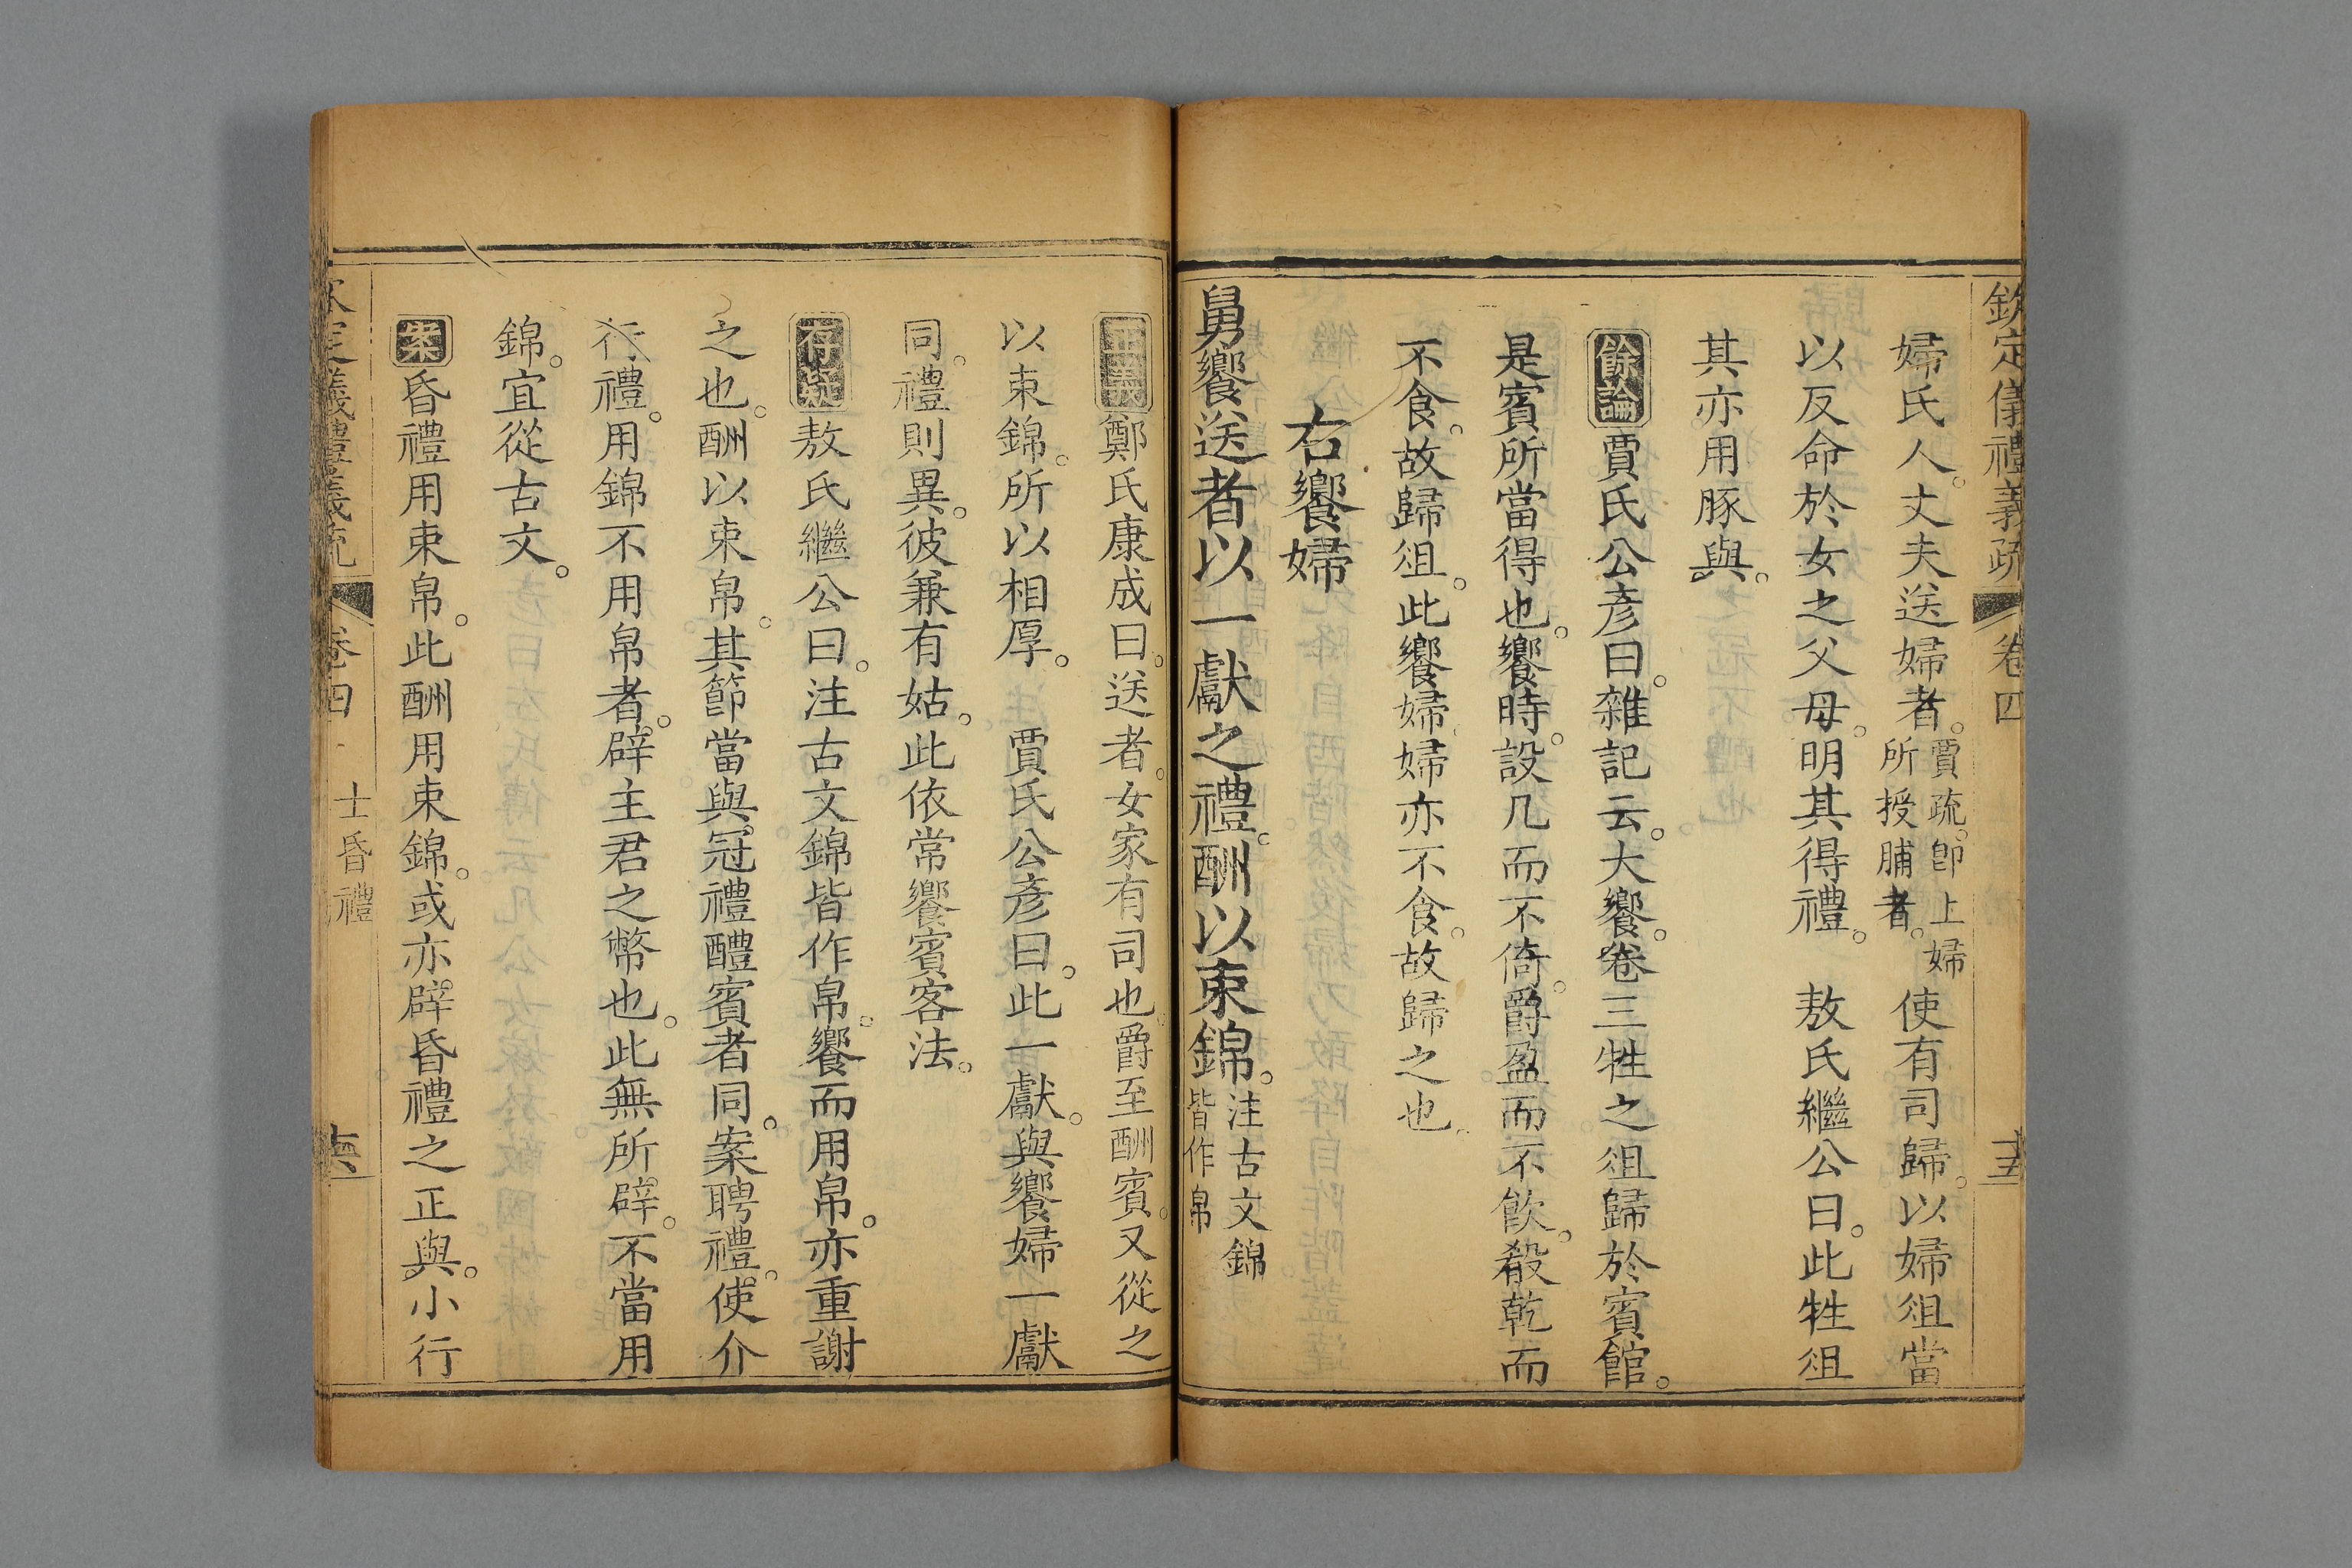 欽定儀禮義疏 卷四 十五
婦氏人。丈夫送婦者。賈疏。卽上婦所授脯者。使有司歸。以婦俎當
以反命於女之父母。明其得禮。 敖氏繼公曰。此牲俎
其亦用豚與。
餘論賈氏公彥曰。雜記云。大饗。卷三牲之俎歸於賓館。
是賓所當得也。饗時。設几而不倚。爵盈而不飮。殽乾而
不食。故歸俎。此饗婦婦亦不食。故歸之也。
右饗婦
舅饗送者以一獻之禮。酬以束錦。注古文錦皆作帛
正義鄭氏康成曰。送者。女家有司也。爵至酬賓。又從之
以束錦。所以相厚。 賈氏公彥曰。此一獻。與饗婦一獻
同。禮則異。彼兼有姑。此依常饗賓客法。
存疑敖氏繼公曰。注古文錦皆作帛。饗而用帛。亦重謝
之也。酬以束帛。其節當與冠禮醴賓者同。案聘禮。使介
行禮。用錦不用帛者。辟主君之幣也。此無所辟。不當用
錦。宜從古文。
案昏禮用束帛。此酬用束錦。或亦辟昏禮之正與。小行
欽定儀禮義疏 卷四 士昏禮 十六